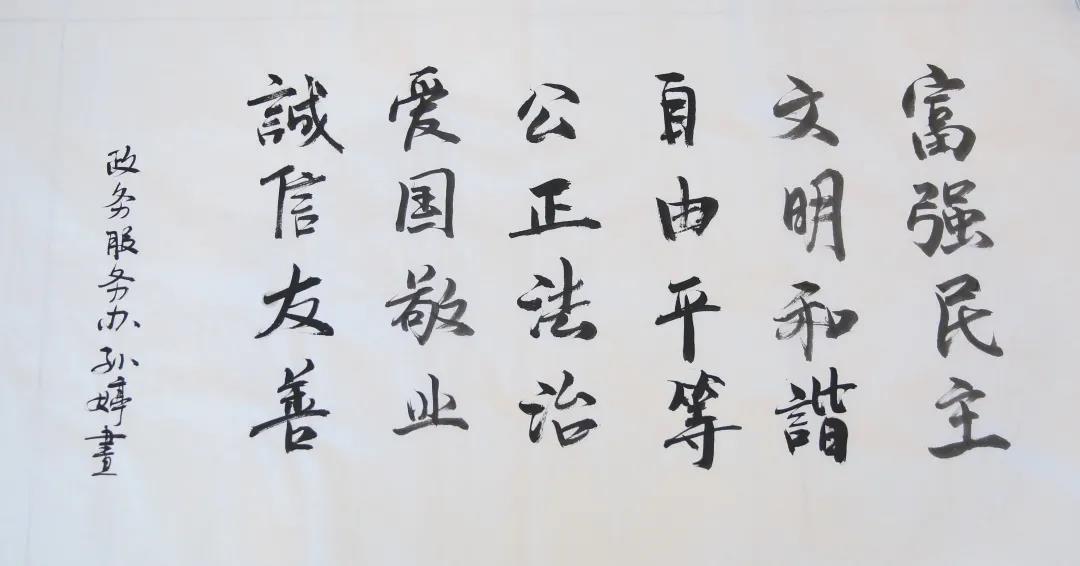 富强民主
文明和諧
自由平等
公正法治
爱国敬业
誠信友善
政务服务办孙婷書